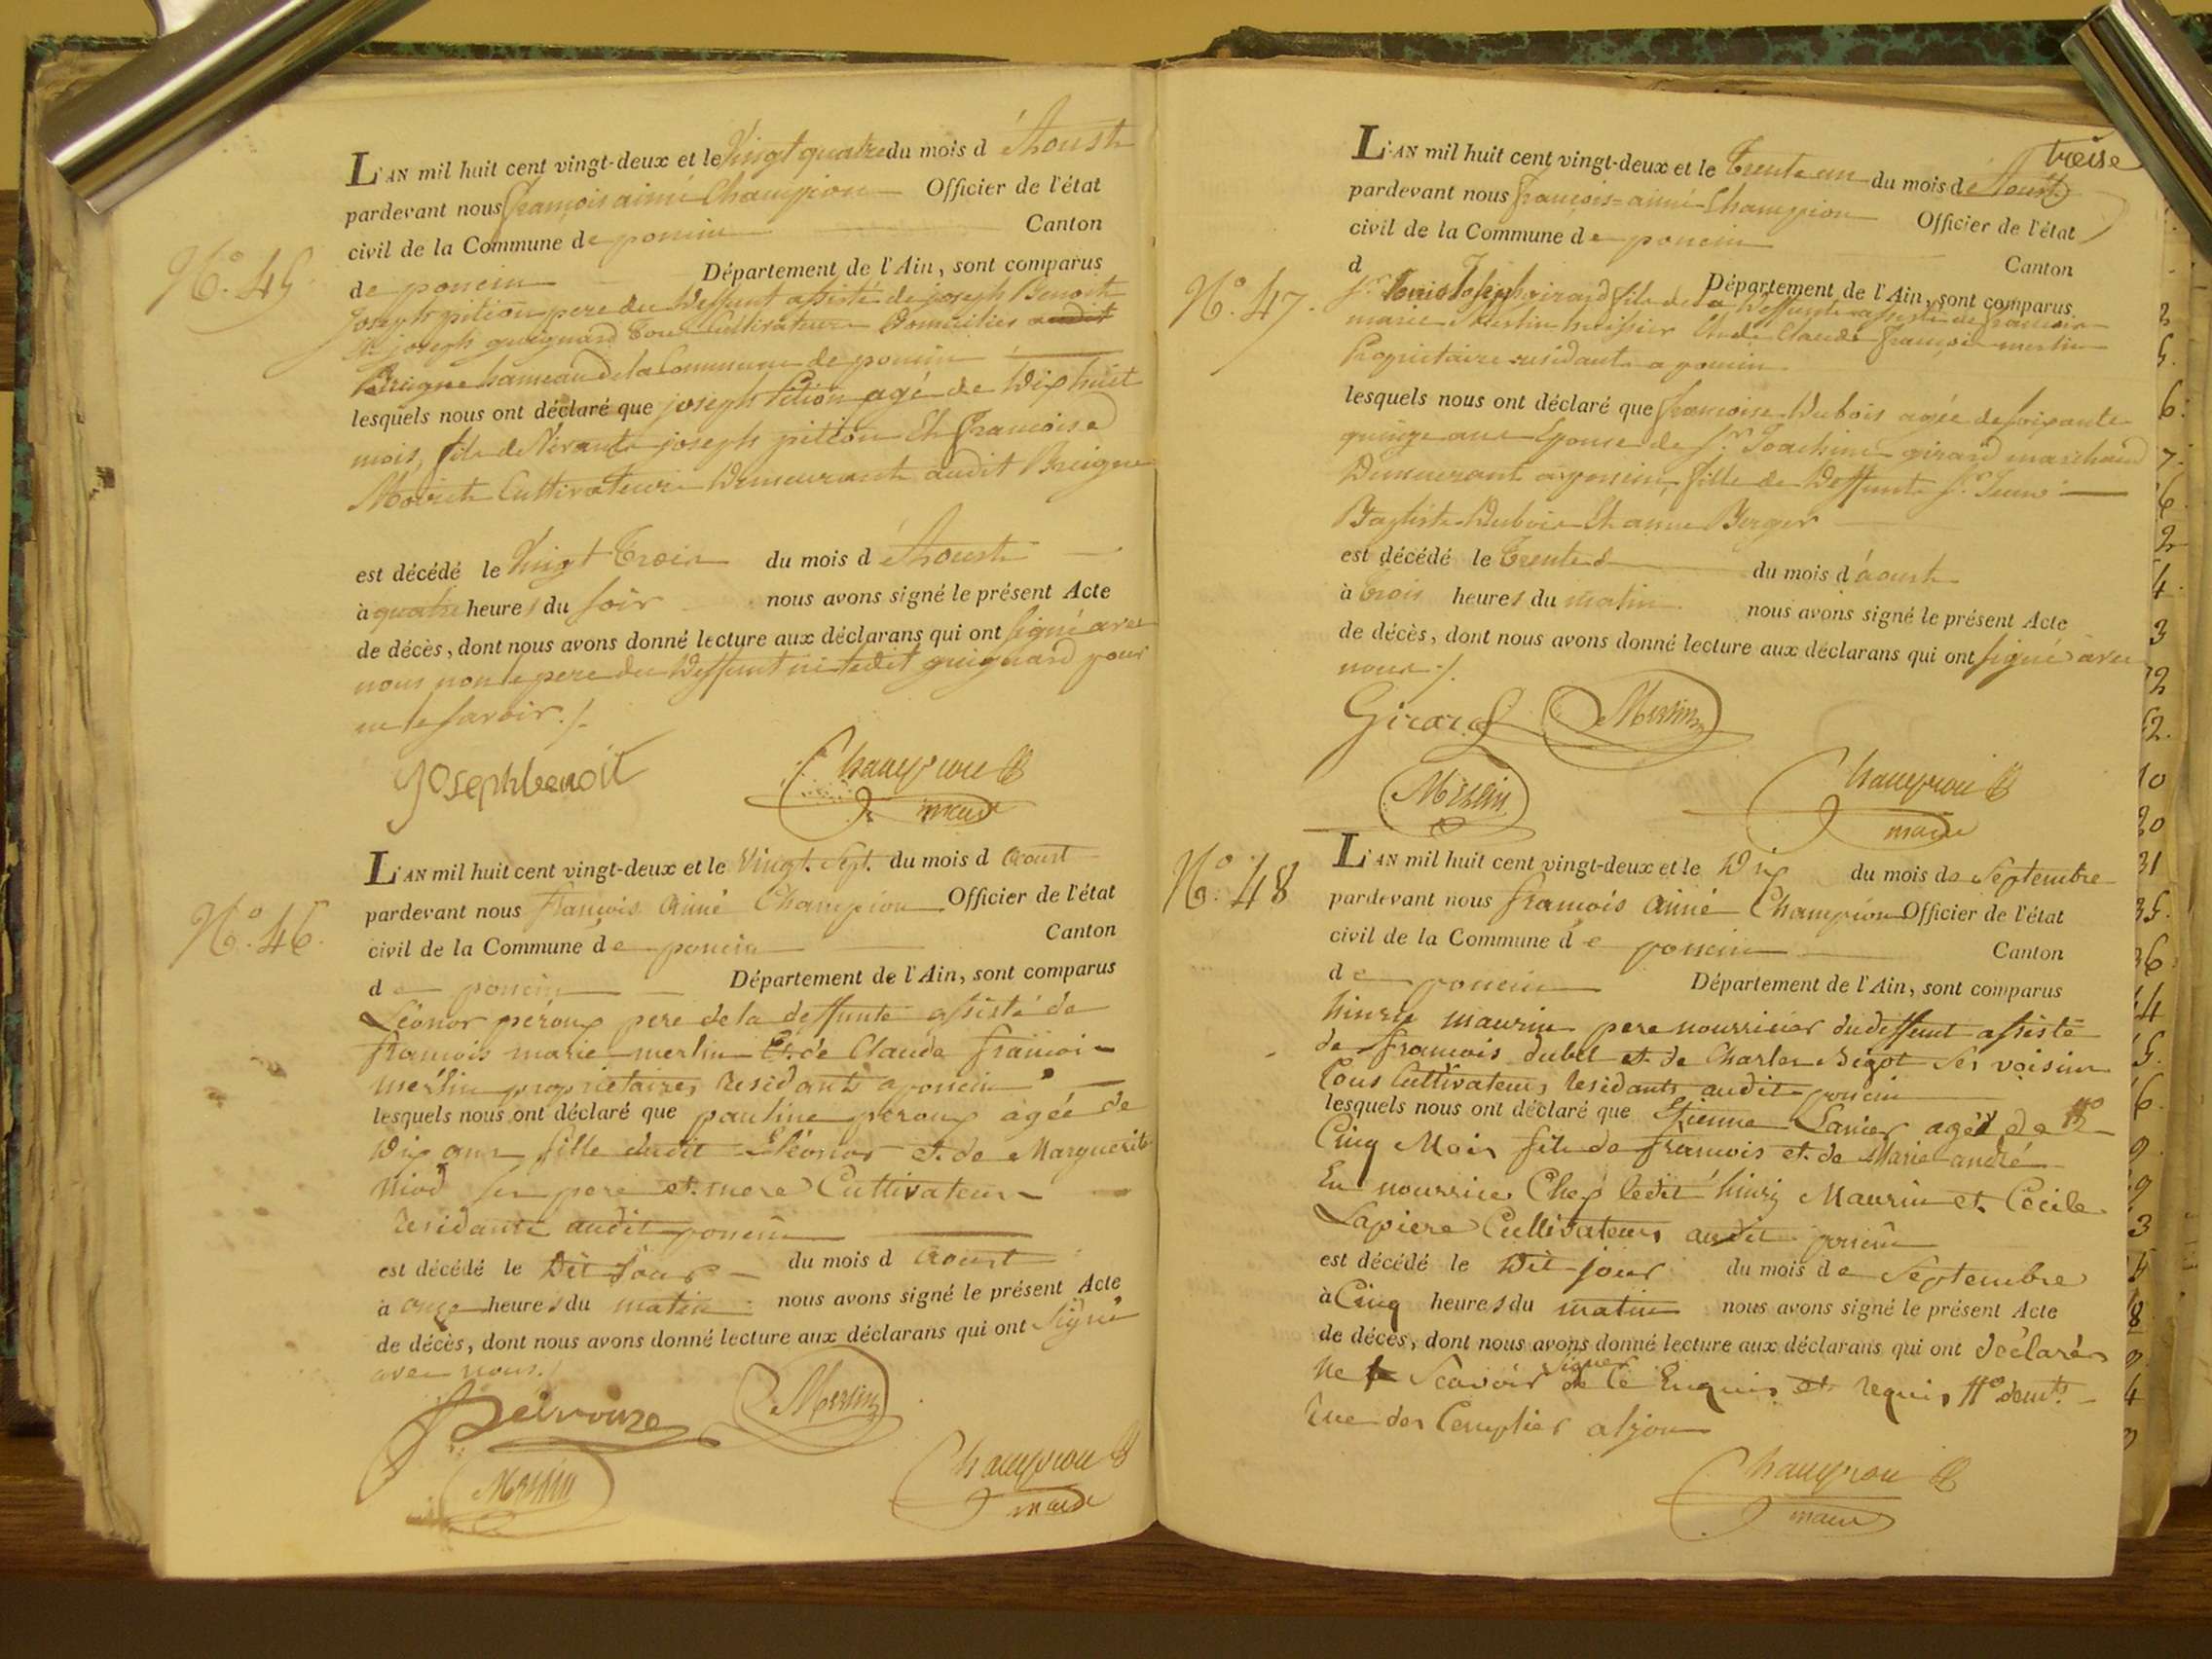 L'AN mil huit cent vingt-deux et le Vingt quatre du mois d'Aoust
pardevant nous françois aimé Champion Officier de l'état
civil de la Commune de poncin Canton
de poncin Département de l'Ain, sont comparus
Joseph pition pere du deffunt assisté de joseph Benoit
et joseph guignard tous Cultivateurs domiciliés audit
Breigne hameau de la Commune de poncin
lesquels nous ont déclaré que joseph Pition agé de dix huit
mois, fils de Vivants joseph pition Et françoise
Moiret Cultivateurs demeurants audit Breigne
est décédé le Vingt Trois du mois d'Aoust
à quatre heures du soir nous avons signé le présent Acte
de décès, dont nous avons donné lecture aux déclarans qui ont signé avec
nous non le pere du deffunt ni ledit guignard pour
ne le savoir ./.
Joseph benoit
Champion
maire
N.º 45
L'AN mil huit cent vingt-deux et le Vingt. Sept. du mois d aoust
pardevant nous françois aimé Champion Officier de l'état
civil de la Commune de poncin Canton
de poncin Département de l'Ain, sont comparus
Léonor péroux pere de la deffunte assisté de
françois marie merlin Et de Claude françoi
merlin proprietaires residants a poncin
lesquels nous ont déclaré que pauline peroux agée de
Dix ans fille dudit Eléonor et de Marguerite
niod ses pere et mere Cultivateurs
residants audit poncin
est décédé le Dit Jour du mois d aoust
à onze heures du matin nous avons signé le présent Acte
de décès, dont nous avons donné lecture aux déclarans qui ont signé
avec nous ./.
Merlin
Merlin
Champion
maire
N.º 46.
treise
L'AN mil huit cent vingt-deux et le Trente un du mois d'Aoust
pardevant nous françois-aimé Champion Officier de l'état
civil de la Commune de poncin
Canton
d Département de l'Ain, sont comparus
Sr. Joseph girard fils de la deffunte assisté de françois
marie Merlin huissier Et de Claude françois merlin
Proprietaire residants a poncin
lesquels nous ont déclaré que françoise Dubois agée de soixante
quinze ans Epouse de Sr. Joachim girard marchand
Demeurant a poncin, fille de Deffunts Sr. Jean
Baptiste Dubois Et anne Berger
est décédé le Trente du mois d'aoust
à Trois heures du matin nous avons signé le présent Acte
de décès, dont nous avons donné lecture aux déclarans qui ont signé avec
nous ./.
Girard
Merlin
Merlin
Champion
maire
N.º 47.
L'AN mil huit cent vingt-deux et le Dix du mois de Septembre
pardevant nous françois aimé Champion Officier de l'état
civil de la Commune de poncin Canton
de poncin Département de l'Ain, sont comparus
hinry maurin pere nourricier du deffunt assisté
de françois dubet et de Charles Bigot ses voisins
tous Cultivateurs residants audit poncin
lesquels nous ont déclaré que Etienne Lanier agé de
Cinq Mois fils de françois et de Marie andré
En nourrice Chez ledit hinry Maurin et Cécile
Lapiere Cultivateurs audit poncin
est décédé le Dit jour du mois de Septembre
à Cinq heures du matin nous avons signé le présent Acte
de décès, dont nous avons donné lecture aux déclarans qui ont déclarés
ne Scavoir signer de ce Enquis et requis
rue des Templier a lyon
Champion
maire
N.º 48